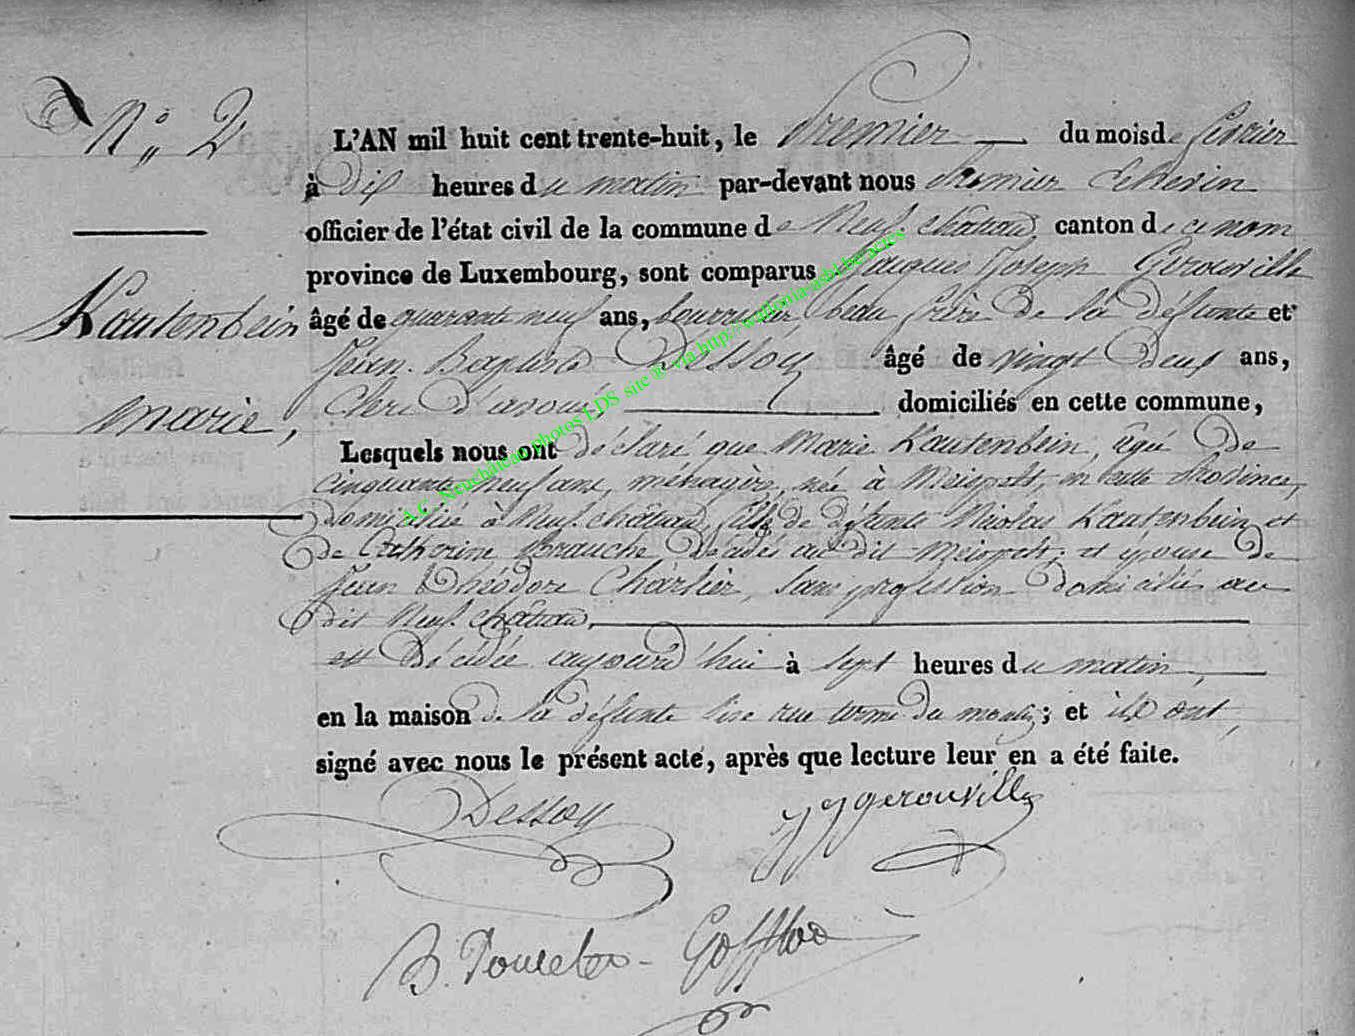 N° 2
L'AN mil huit cent trente-huit, le Premier du mois de février
à dix heures du matin par-devant nous Premier Echevin
officier de l'état civil de la commune de Neufchâteau canton de ce nom
province de Luxembourg, sont comparus Jacques Joseph Gerouville
Kautenbein
âgé de quarante neuf ans, bourrelier beau frère de la défunte et
Jean Baptiste Dessoy âgé de vingt deux ans,
Marie,
Clerc d'avoué domiciliés en cette commune,
Lesquels nous ont déclaré que Marie Kautenbein, âgé de
cinquante neuf ans, ménagère, née à en cette Province,
domiciliée à Neufchâteau, fille de défunts Nicolas Kautenbein et
de Catherine décédés au dit et épouse de
Jean Théodore Charlier, sans profession domicilié au
dit Neufchâteau,
est décédée aujourd'hui à sept heures du matin,
en la maison de la défunte sise rue du ; et ils ont
signé avec nous le présent acte, après que lecture leur en a été faite.
Dessoy JJGerouville
Goffloo
A.C. Neufchâteau photos LDS site © via http://wallonia-asbl.be/actes